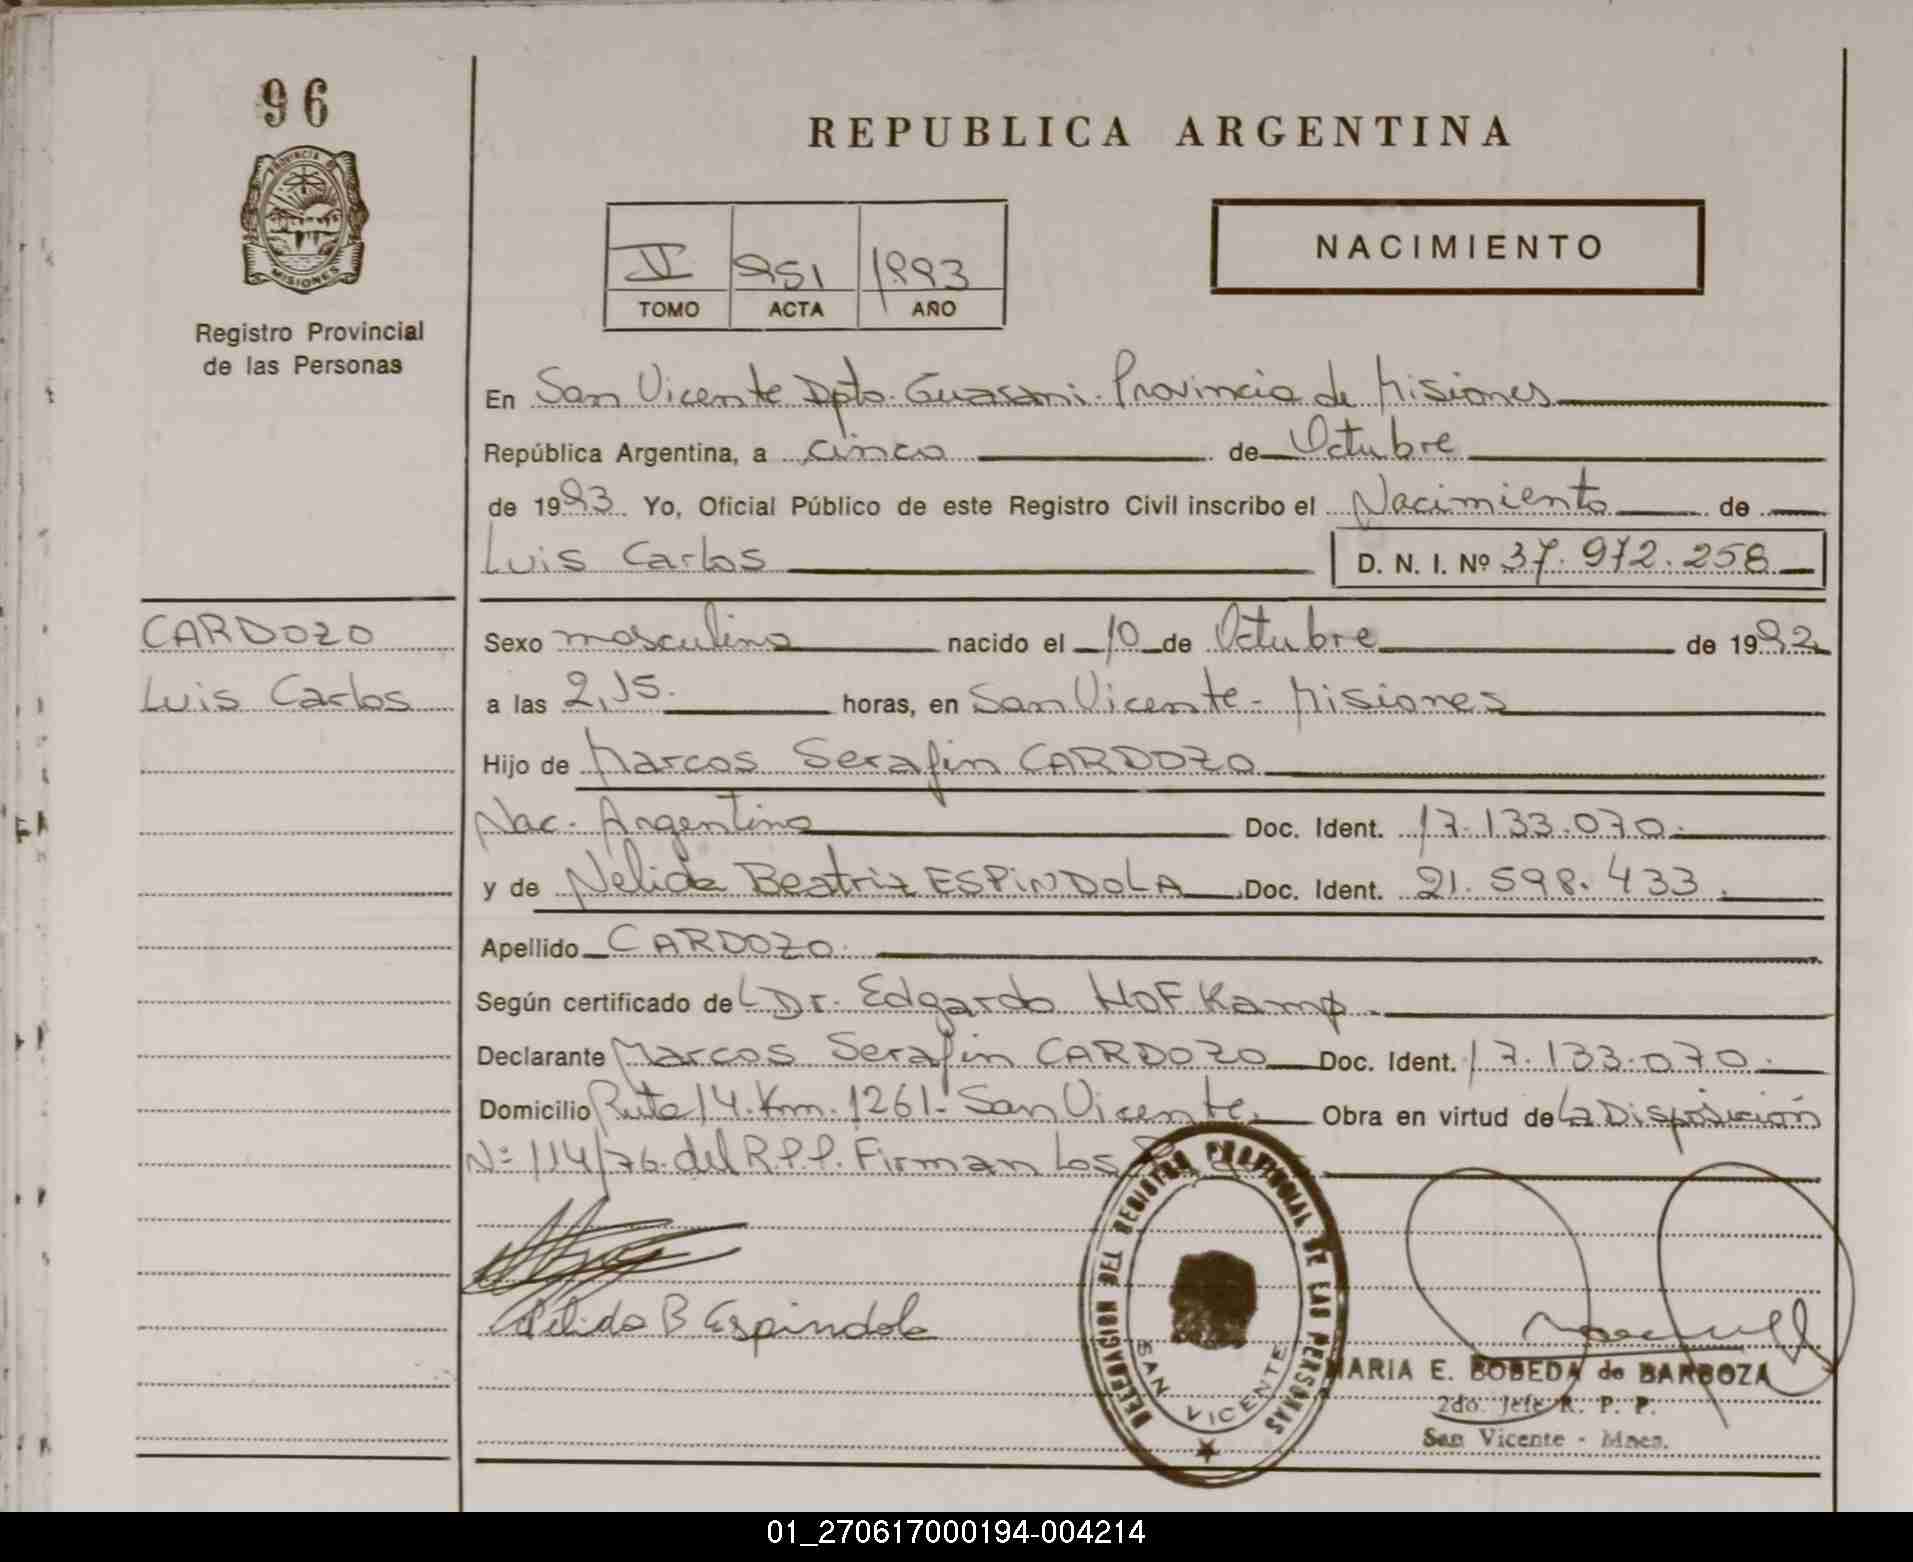 96
PROVINCIA DE
MISIONES
Registro Provincial
de las Personas
REPUBLICA ARGENTINA
V 951 1993
TOMO ACTA AÑO
NACIMIENTO
En San Vicente Dpto. Guarani. Provincia de Misiones
República Argentina, a cinco de Octubre
de 1993. Yo, Oficial Público de este Registro Civil inscribo el Nacimiento de
Luis Carlos D. N. I. Nº 37.972.258
CARDOZO
Luis Carlos
Sexo masculino nacido el 10 de Octubre de 1992
a las 2,15. horas, en San Vicente - Misiones
Hijo de Marcos Serafin CARDOZO
Nac. Argentino Doc. Ident. 17.133.070.
y de Nelida Beatriz ESPINDOLA Doc. Ident. 21.598.433.
Apellido CARDOZO.
Según certificado de L Dr. Edgardo HOFKamp.
Declarante Marcos Serafin CARDOZO Doc. Ident. 17.133.070.
Domicilio Ruta 14. Km. 1261. San Vicente. Obra en virtud de La Disposición
Nº 114/76 del R.P.P. Firman Los
Nelida B Espindola
DELEGACION DEL REGISTRO PROVINCIAL DE LAS PERSONAS
SAN VICENTE
MARIA E. BOBEDA de BARBOZA
2do. Jefe R. P. P.
San Vicente - Mnes.
01_270617000194-004214